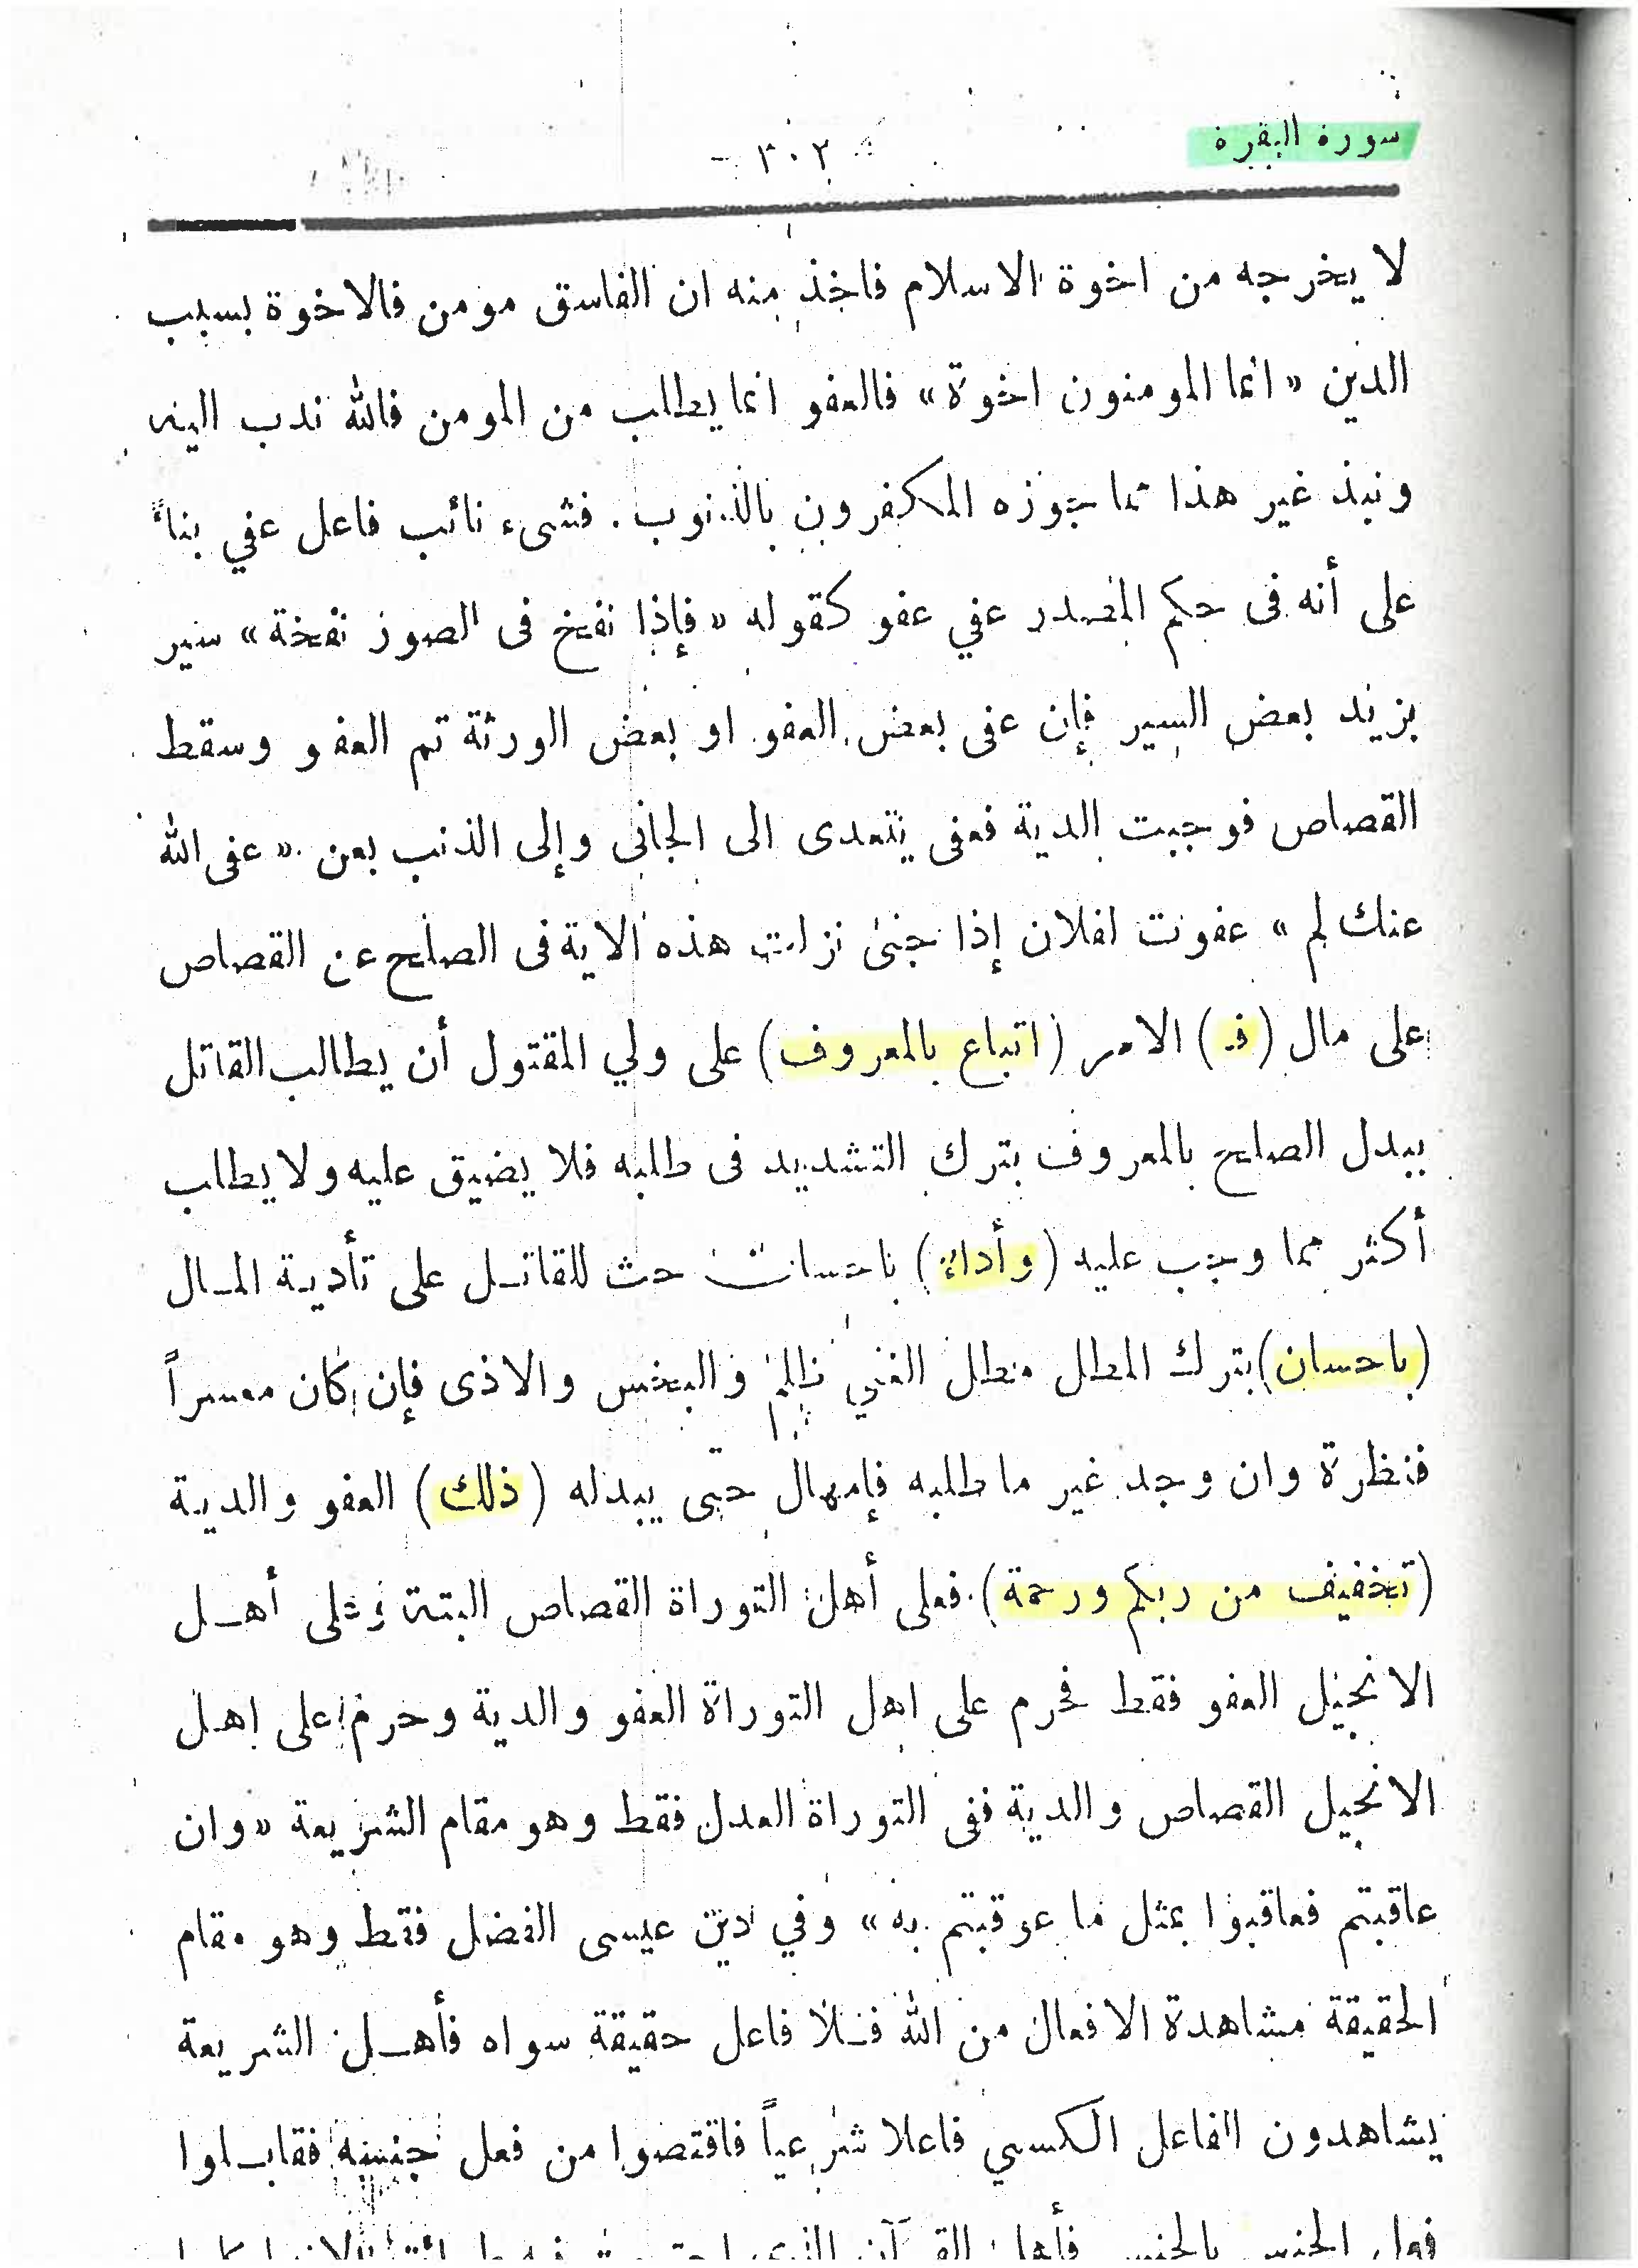 سورة البقرة
- ٣٠٢ -
لا يخرجه من اخوة الاسلام فاخذ منه ان الفاسق مومن فالاخوة بسبب
الدين « انما المومنون اخوة » فالعفو انما يطلب من المومن فالله ندب اليه
ونبذ غير هذا مما جوزه المكفرون بالذنوب . فشىء نائب فاعل عفي بناءً
على أنه فى حكم المصدر عفي عفو كقوله « فإذا نفخ فى الصور نفخة » سير
بزيد بعض السير فإن عفى بعض العفو او بعض الورثة تم العفو وسقط
القصاص فوجبت الدية فعفى يتعدى الى الجانى وإلى الذنب بعن « عفى الله
عنك لم » عفوت لفلان إذا جنى نزلت هذه الاية فى الصلح عن القصاص
على مال ( فـ ) الامر ( اتباع بالمعروف ) على ولي المقتول أن يطالب القاتل
ببدل الصلح بالمعروف بترك التشديد فى طلبه فلا يضيق عليه ولا يطلب
أكثر مما وجب عليه ( وأداء ) باحسان حث للقاتل على تأدية المال
( باحسان ) بترك المطل مطل الغني ظلم والبخس والاذى فإن كان معسراً
فنظرة وان وجد غير ما طلبه فإمهال حتى يبدله ( ذلك ) العفو والدية
( تخفيف من ربكم ورحمة ) . فعلى أهل التوراة القصاص البتة وعلى أهل
الانجيل العفو فقط فحرم على اهل التوراة العفو والدية وحرم على اهل
الانجيل القصاص والدية ففى التوراة العدل فقط وهو مقام الشريعة « وان
عاقبتم فعاقبوا بمثل ما عوقبتم به » وفي دين عيسى الفضل فقط وهو مقام
الحقيقة مشاهدة الافعال من الله فلا فاعل حقيقة سواه فأهل الشريعة
يشاهدون الفاعل الكسبي فاعلا شرعياً فاقتصوا من فعل جنسه فقابلوا
فعل الجنس بالجنس فأهل القرآن الذى